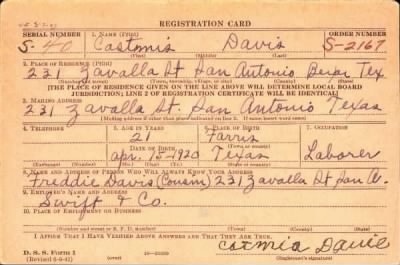 REGISTRATION CARD
SERIAL NUMBER 1. NAME (Print) ORDER NUMBER
S-40 Costmis Davis S-2167
(First) (Middle) (Last)
2. PLACE OF RESIDENCE (Print)
231 Zavalla St San Antonio Bexar Tex
(Number and street) (Town, township, village, or city) (County) (State)
[THE PLACE OF RESIDENCE GIVEN ON THE LINE ABOVE WILL DETERMINE LOCAL BOARD
JURISDICTION; LINE 2 OF REGISTRATION CERTIFICATE WILL BE IDENTICAL]
3. MAILING ADDRESS
231 Zavalla St. San Antonio Texas
[Mailing address if other than place indicated on line 2. If same insert word same]
4. TELEPHONE 5. AGE IN YEARS 6. PLACE OF BIRTH 7. OCCUPATION
21 Farris
DATE OF BIRTH (Town or county)
Apr. 15-1920 Texas Laborer
(Exchange) (Number) (Mo.) (Day) (Yr.) (State or country)
8. NAME AND ADDRESS OF PERSON WHO WILL ALWAYS KNOW YOUR ADDRESS
Freddie Davis (Cousin) 231 Zavalla St San A.
9. EMPLOYER'S NAME AND ADDRESS
Swift & Co.
10. PLACE OF EMPLOYMENT OR BUSINESS
(Number and street or R. F. D. number) (Town) (County) (State)
I AFFIRM THAT I HAVE VERIFIED ABOVE ANSWERS AND THAT THEY ARE TRUE.
Costmia Davis
D. S. S. Form 1
(Revised 6-9-41) (Registrant's signature)